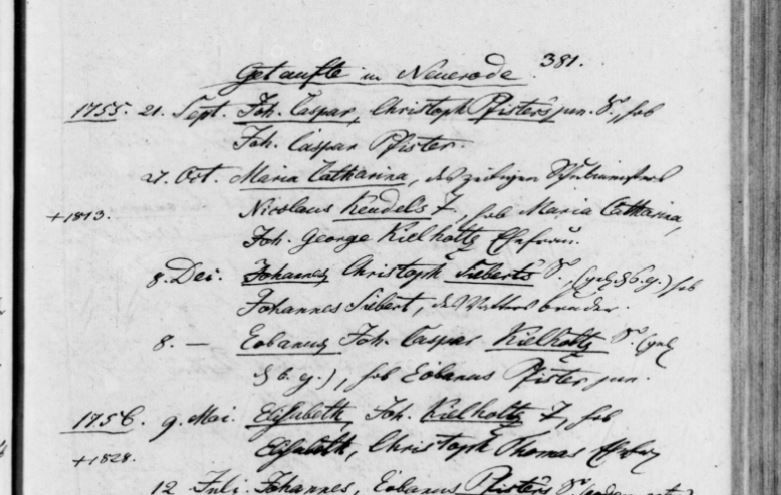 381.
Getaufte in Neuerode
1755. 21. Sept. Joh. Caspar, Christoph Pfisters jun. S., hob
Joh. Caspar Pfister.
27. Oct. Maria Catharina, des zeitigen Schulmeisters
+1813. Nicolaus Keudel's T., hob Maria Catharina,
Joh. George Kielholtz Ehefrau.
8. Dec. Johannes Christoph Sieberts S., hob
Johannes Siebert, des Vatters bruder.
8. — Eobanus Joh. Caspar Kielholtz S.
hob Eobanus Pfister jun.
1756. 9. Mai. Elisabeth, Joh. Kielholtz T., hob
+1828. Elisabeth, Christoph Thomas
12 Juli. Johannes, Eobanus Pfisters S.